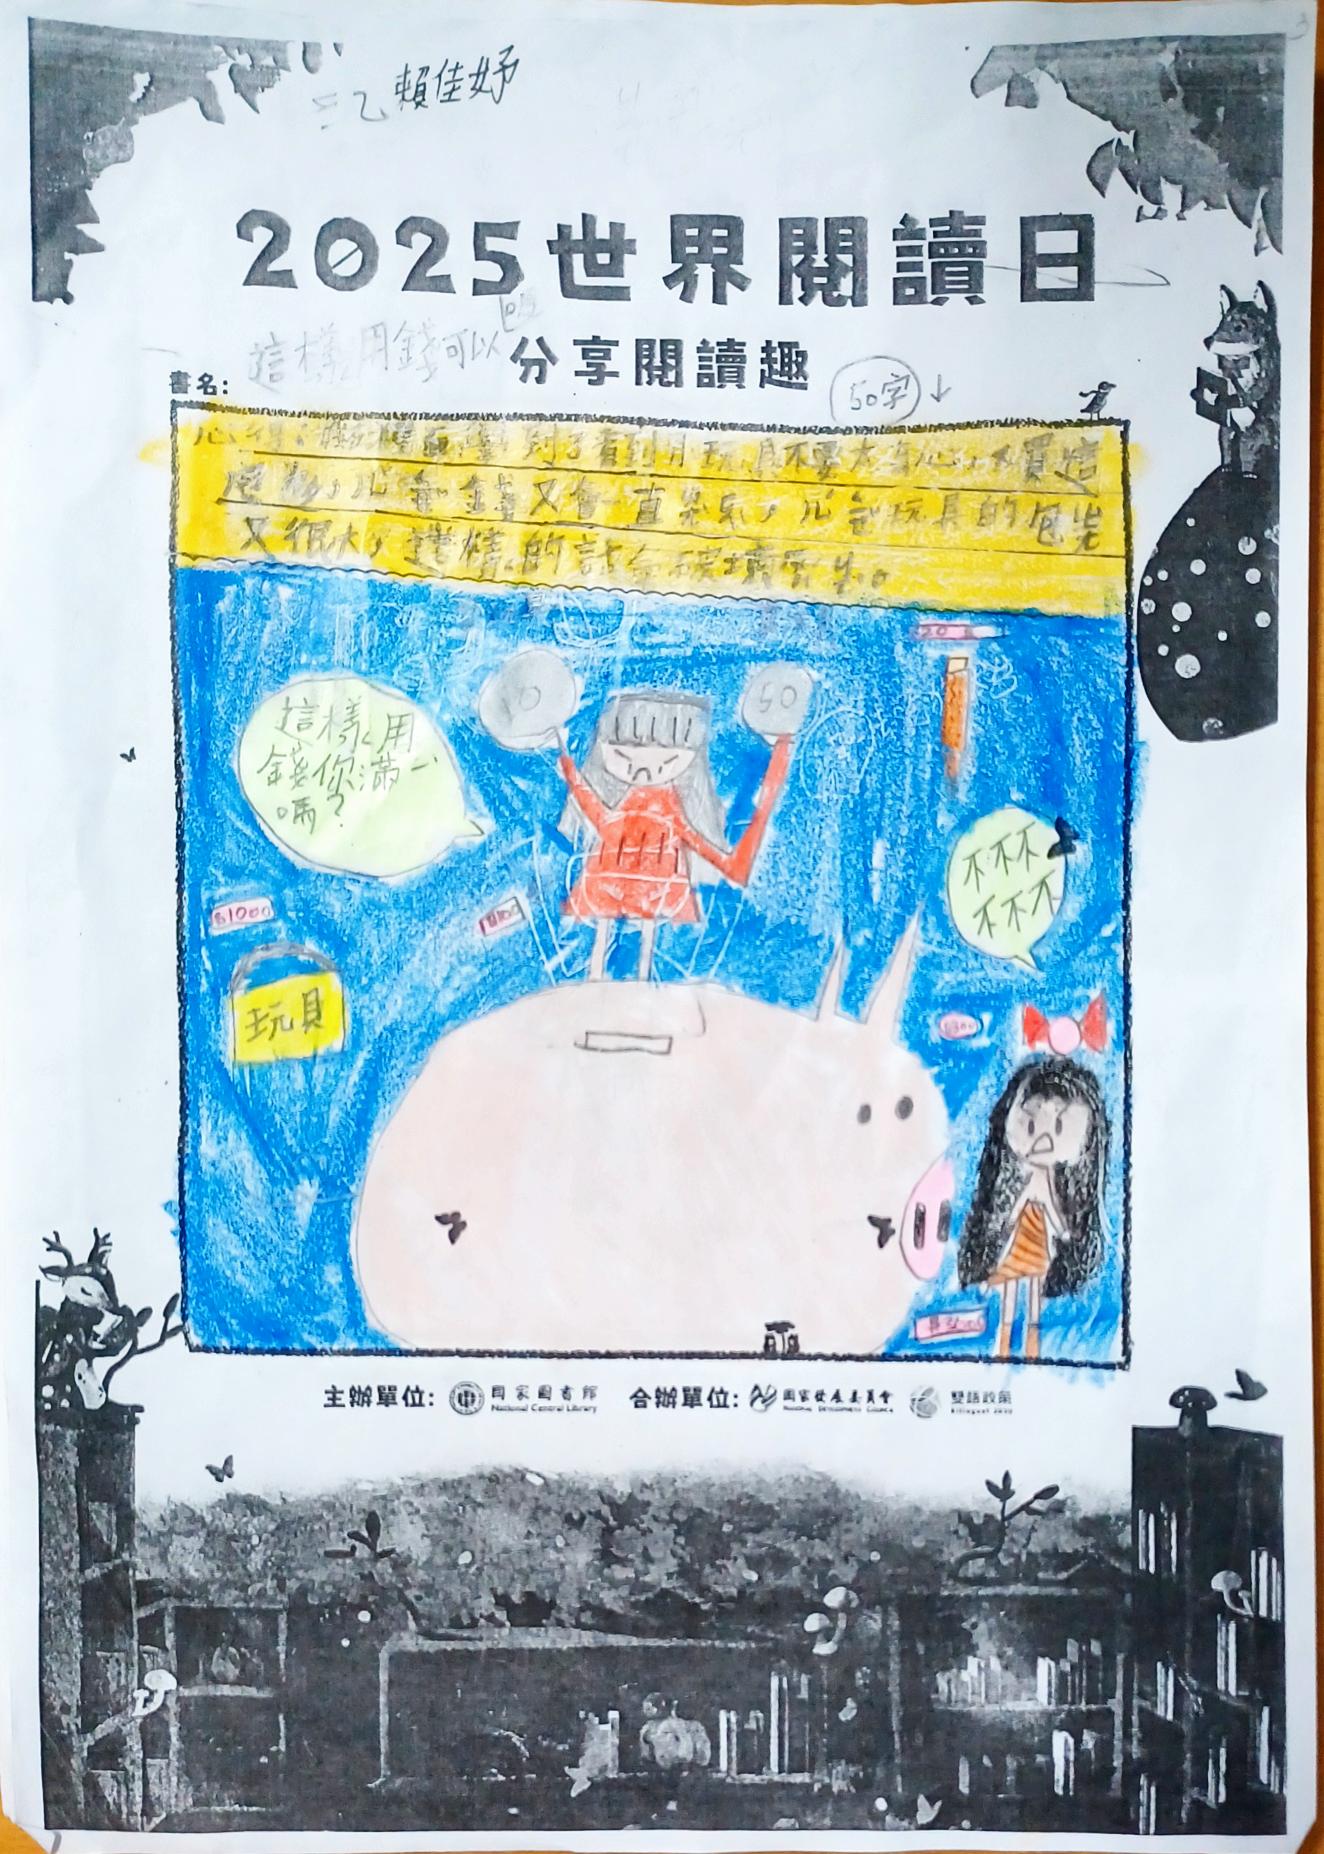 三乙 賴佳妤
2025世界閱讀日
這樣用錢可以嗎
分享閱讀趣
書名:
50字↓
心得:
到了看到用玩具不要太貪心,不買這
錢又會一直
玩具的包裝
又很大,這樣的話會破壞
10
50
20
這樣用
錢你滿
嗎?
不不不
不不不
$1000
$100
玩具
$300
主辦單位: 國家圖書館 合辦單位: 國家發展委員會 雙語政策
National Central Library NATIONAL DEVELOPMENT COUNCIL Bilingual 2030